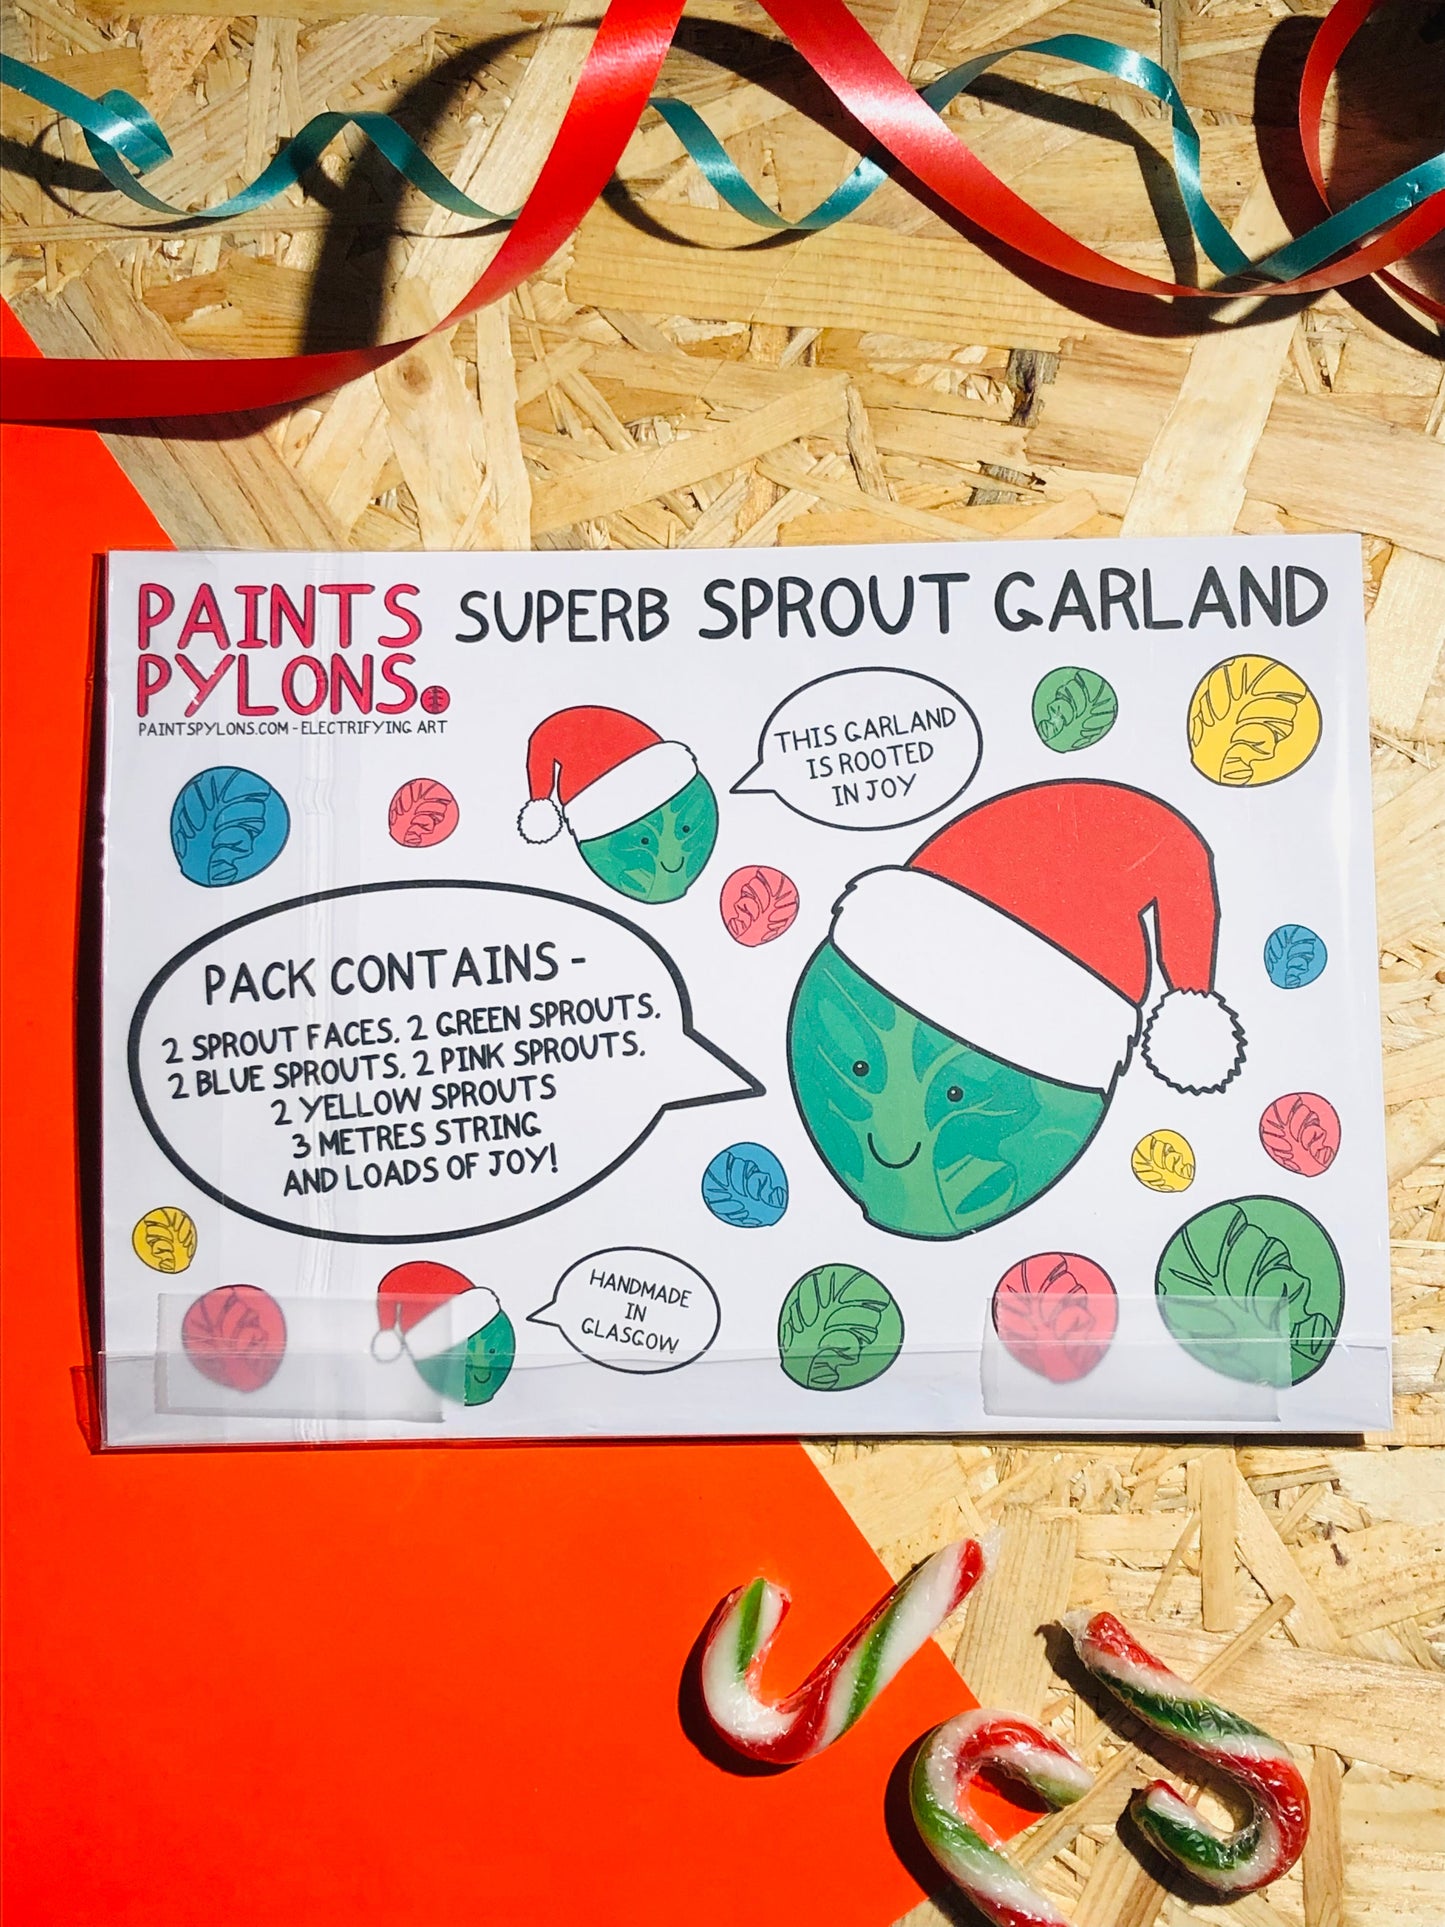 PAINTS
PYLONS.
PAINTSPYLONS.COM - ELECTRIFYING ART
SUPERB SPROUT GARLAND
THIS GARLAND
IS ROOTED
IN JOY
PACK CONTAINS -
2 SPROUT FACES, 2 GREEN SPROUTS,
2 BLUE SPROUTS, 2 PINK SPROUTS,
2 YELLOW SPROUTS
3 METRES STRING
AND LOADS OF JOY!
HANDMADE
IN
GLASGOW